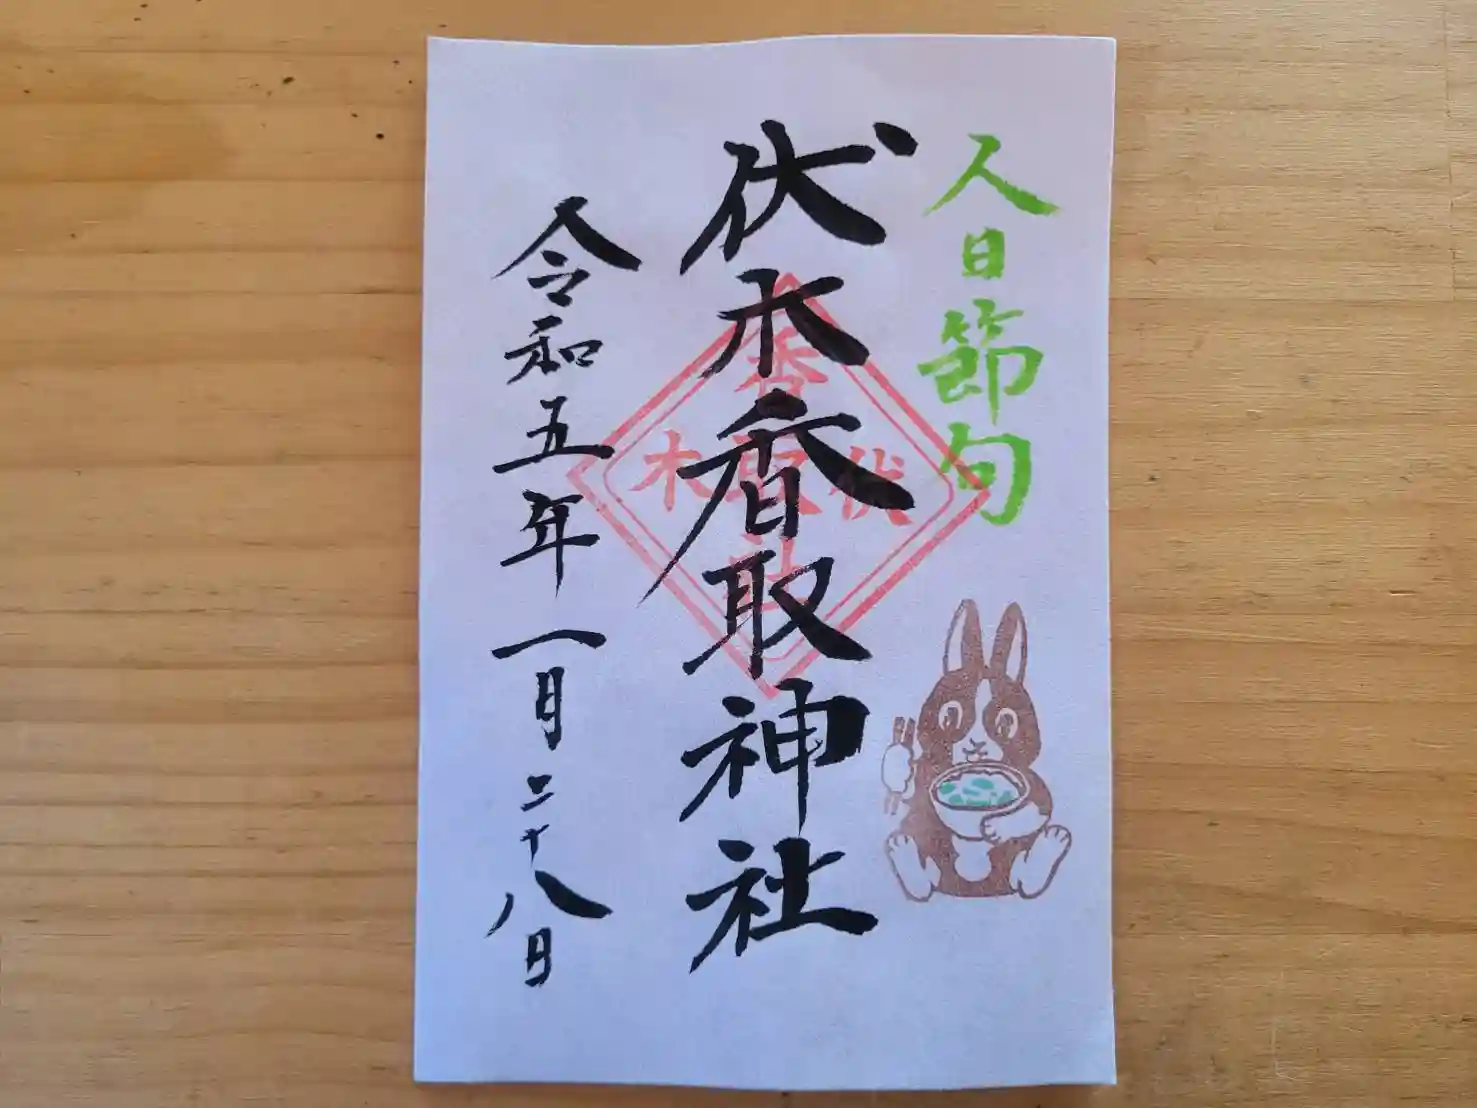 人日節句
伏木香取神社
伏木
香取
令和五年一月二十八日